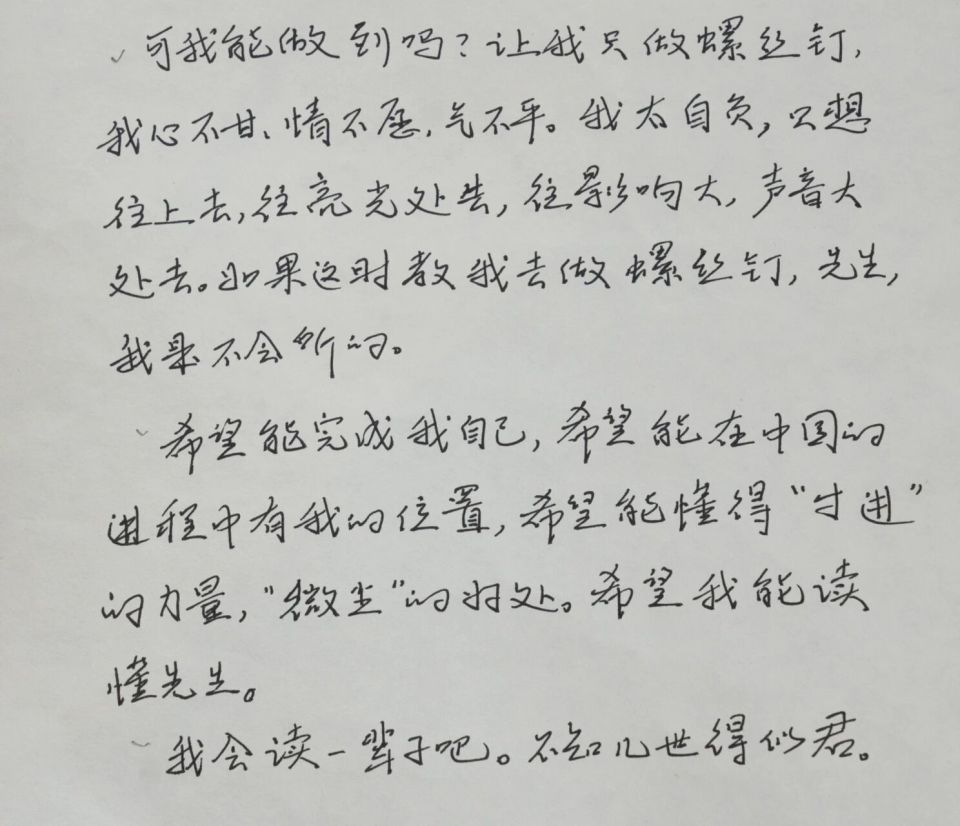 可我能做到吗？让我只做螺丝钉，
我心不甘、情不愿，气不平。我太自负，只想
往上去，往亮光处去，往影响大，声音大
处去。如果这时教我去做螺丝钉，先生，
我是不会听的。
希望能完成我自己，希望能在中国的
进程中有我的位置，希望能懂得“寸进”
的力量，“微尘”的好处。希望我能读
懂先生。
我会读一辈子吧。不知几世得似君。